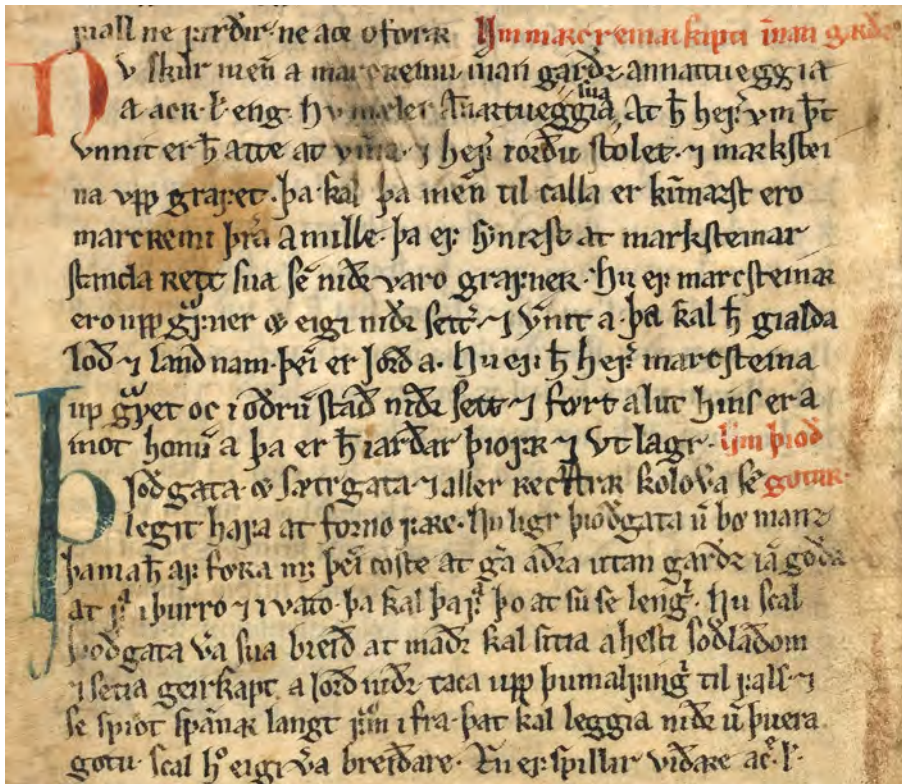 fiall ne firðir ne ace oforar Vm marcreinar skipti innan garðz
Nv skilr menn a marcreinu innan garðz annattueggia
a acr. ł eng. Hv mæler annartueggia sua At ħ hefir vm þat
vnnit er ħ atte at vinna ⁊ hefir iorðu stolet ⁊ markstei
na vpp grafet. þa skal þa menn til calla er kunnazst ero
marcreini þeira a mille. þa ef synizst at marksteinar
standa rett sua sem niðr varo grafner. Nu ef marcsteinar
ero upp grafner oc eigi niðr setter ⁊ vnnit a. þa skal ħ gialda
loð ⁊ land nam þeim er Jorð a. Nu ef ħ hefir marcsteina
up grafet oc i oðrum stað niðr sett ⁊ fort a lut hins er a
mot honum a þa er ħ iarðar þiofr ⁊ vtlagr. Vm þioð
Þioðgata oc sætrgata ⁊ aller recstrar skolo va sem gotur.
legit hafa at forno fare. Nu ligr þioðgata um bø mannz
þa ma ħ af fora með þeim coste at gera aðra utan garðz iam goða
at fara i þurro ⁊ i vato. þa skal þa fara þo at su se lengri. Nu scal
þioðgata vera sua breið at maðr skal sitia a hesti soðlaðom
⁊ setia geirskapt a Jorð niðr taca upp þumalfingri til fals ⁊
se spiot spannar langt framm i fra þat skal leggia niðr um þuera
gotu scal hon eigi vera breiðare. En ef spillir viðare acr ł